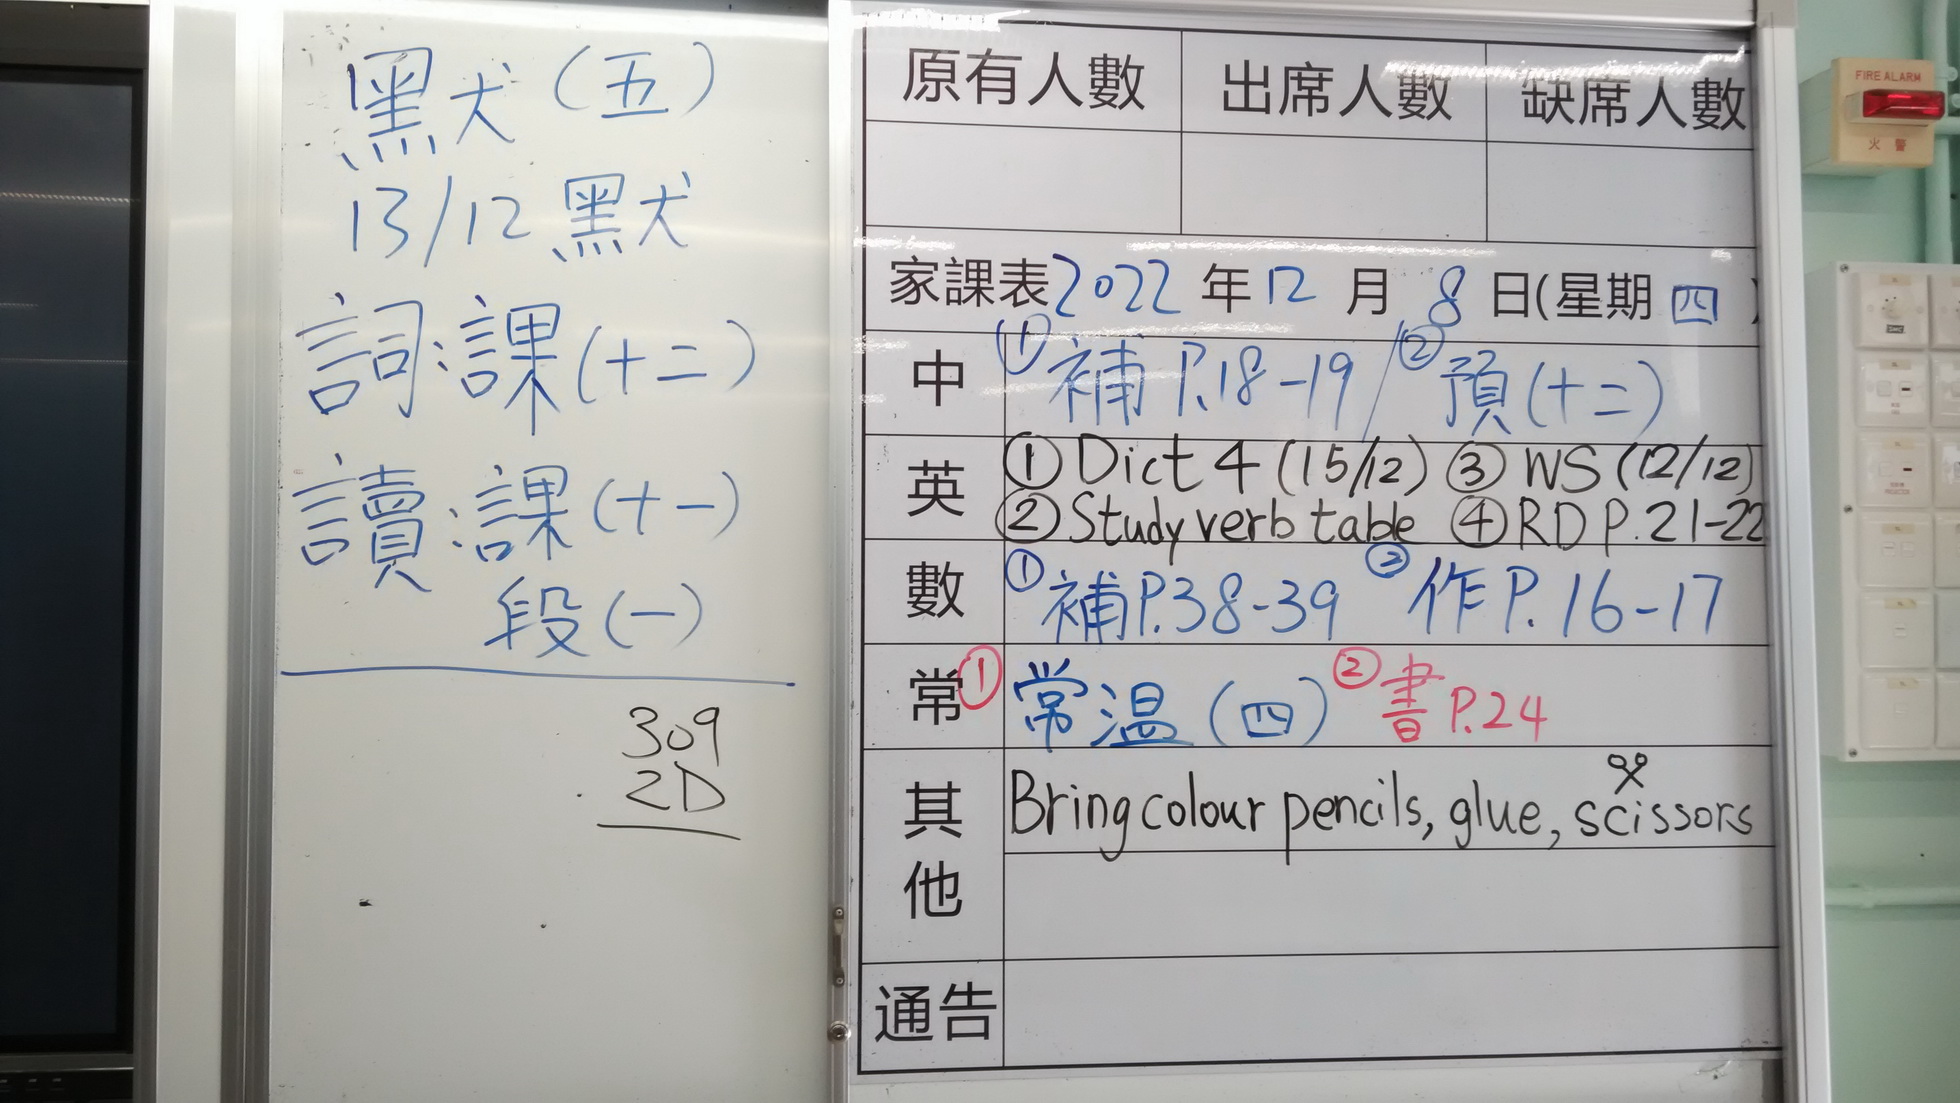 默(五)
13/12 默
詞:課(十二)
讀:課(十一)
段(一)
309
2D
原有人數 出席人數 缺席人數
家課表2022年12月8日(星期四)
中 ①補P.18-19/②預(十二)
英 ①Dict 4 (15/12) ③WS (12/12)
②Study verb table ④RD P.21-22
數 ①補P.38-39 ②作P.16-17
常 ①常温(四) ②書P.24
其他 Bring colour pencils, glue, scissors
通告
FIRE ALARM
火警